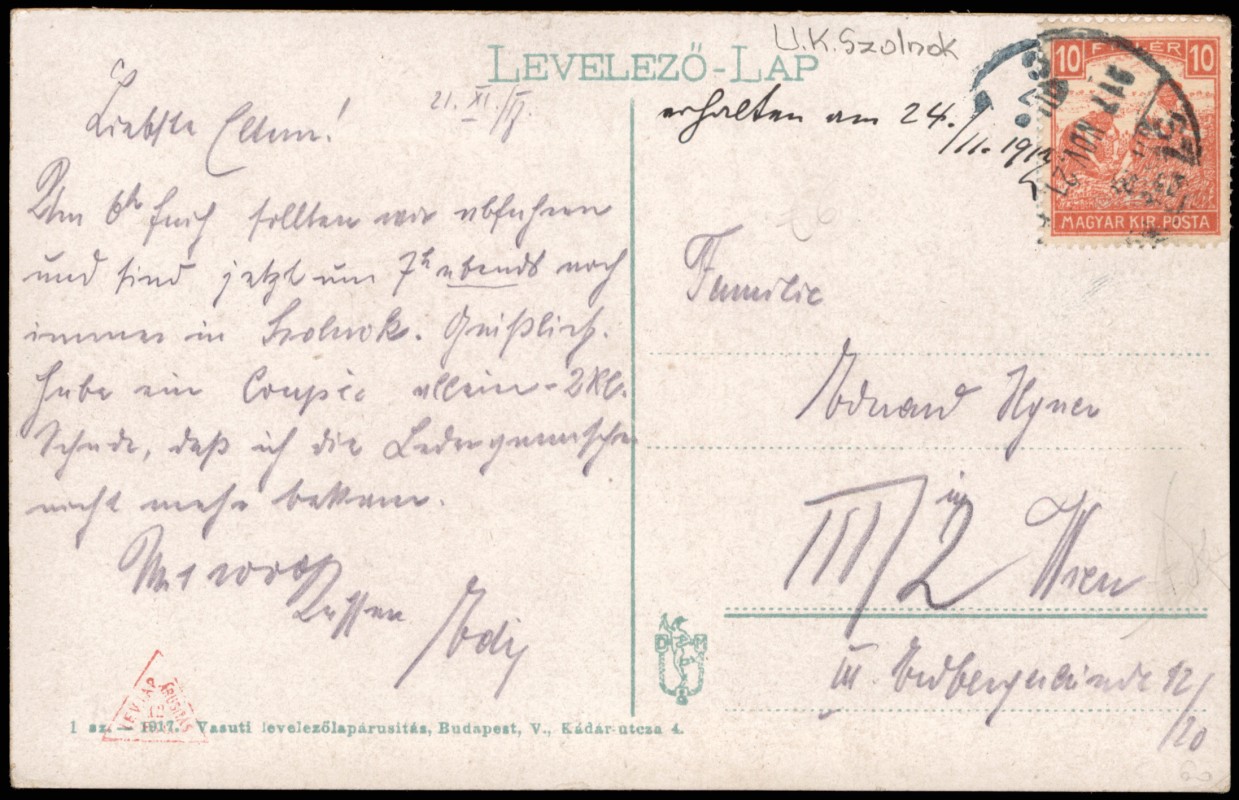 U.K. Szolnok
LEVELEZŐ-LAP
10 FILLÉR 10
MAGYAR KIR. POSTA
917 NOV 21
erhalten am 24./11. 1917
21. XI./17.
Liebste Eltern!
Um 6h früh sollten wir abfahren
und sind jetzt um 7h abends noch
immer in Szolnok. Gräßlich.
Habe ein Coupée allein - 2 Kl.
Schade, daß ich die Ledergamaschen
nicht mehr bekam.
Küssen Edi
Familie
Eduard Hgner
in
III/2 Wien
III. Erdbergerlände 12/
/20
DM
LEV. LAP ÁRUSITÁS
1 sz. — 1917. Vasuti levelezőlapárusitás, Budapest, V., Kádár-utcza 4.